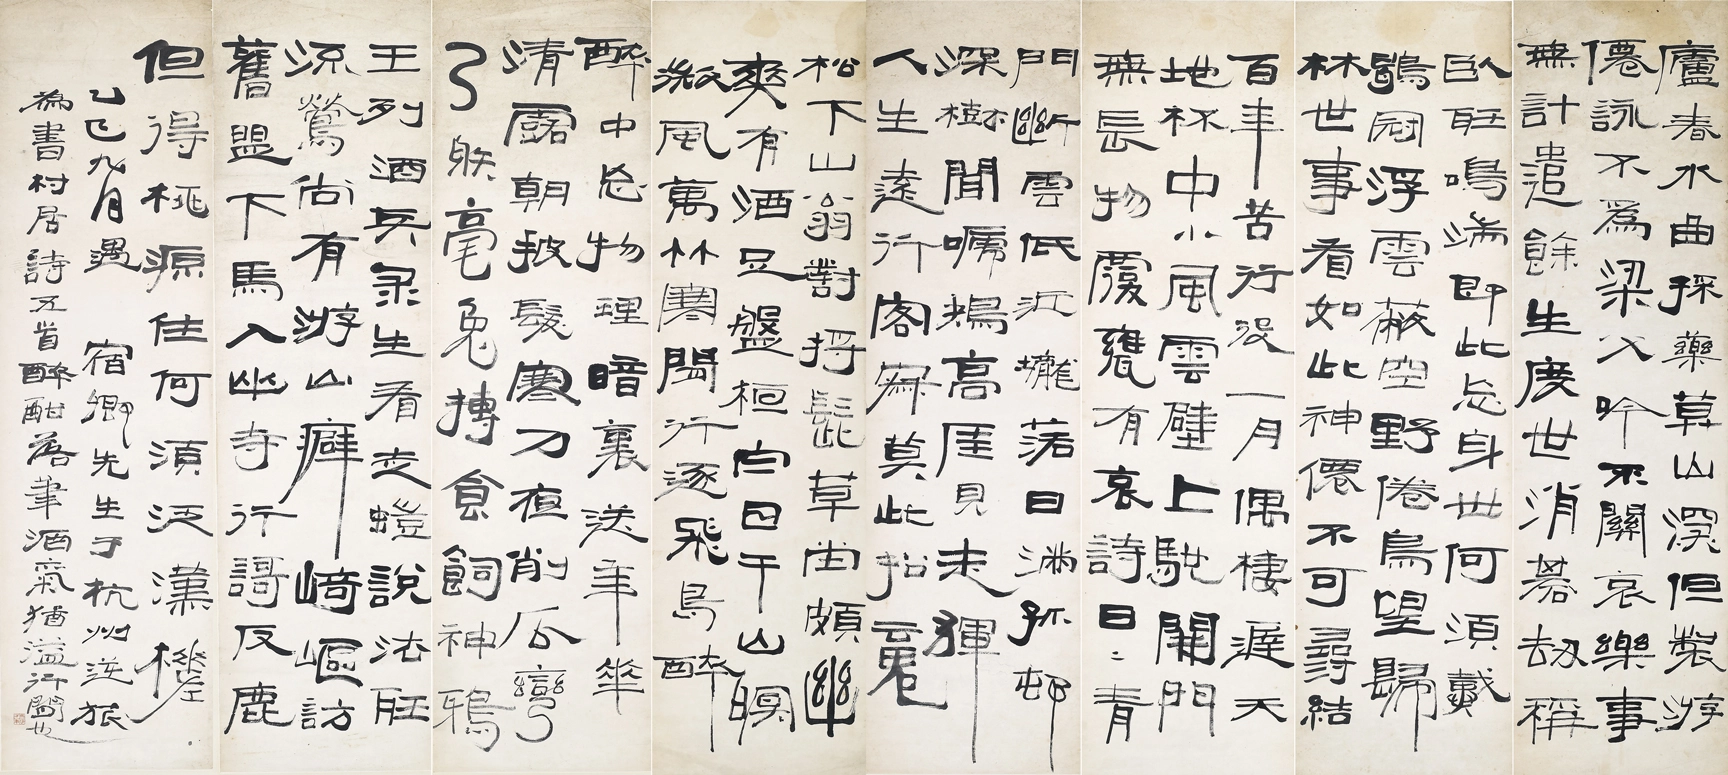 廬春水曲採藥草山深但製游
僊詠不為梁父吟不關哀樂事
無計遣餘生度世消碁劫稱
臥肱鳴湍即此忘身世何須戴
鶡冠浮雲蔽空野倦鳥望歸
林世事看如此神僊不可尋結
百年苦行役一月偶棲遲天
地杯中小風雲壁上馳開門
無長物覆甕有哀詩日二青
門幽斫雲低近壠落日滿孤邨
深樹聞嘱鵝高厓見走猙
人生遠行客寂莫此招魂
松下山翁對捋髭草出頗幽
爽有酒足盤桓白日干山暝
微風萬林寒閒行逐飛鳥醉
醉中忘物理暗裏送年華
清露朝披髮寒刀夜削瓜彎
弓躲毫兔摶食飼神鴉
王列酒兵录生看走螘說法肱
流鶯尚有游山癖崎嶇訪
舊盟下馬入山寺行謌反鹿
但得桃源住何須泛漢槎
乙巳九月遇宿卿先生于杭州逆旅
為書村居詩五首醉酣落筆酒氣猶溢行閒也